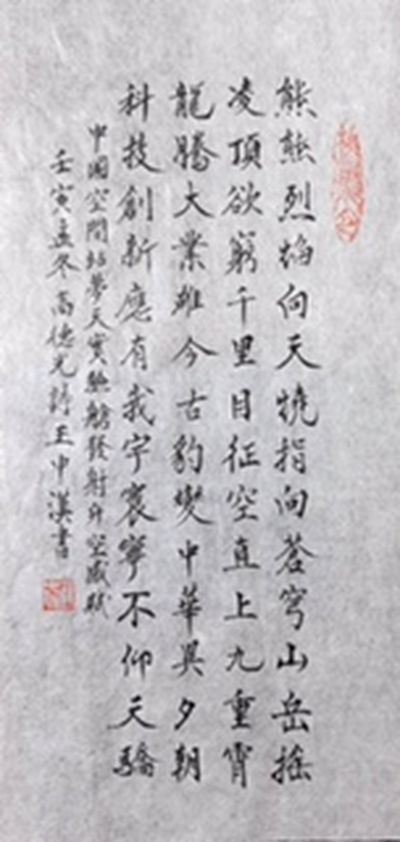 熊熊烈焰向天燒指向蒼穹山岳摇
凌頂欲窮千里目征空直上九重霄
龍騰大業雄今古豹變中華異夕朝
科技創新應有我宇寰寧不仰天驕
中国空間站夢天實驗艙發射升空感賦
壬寅孟冬高德光詩王中漢書